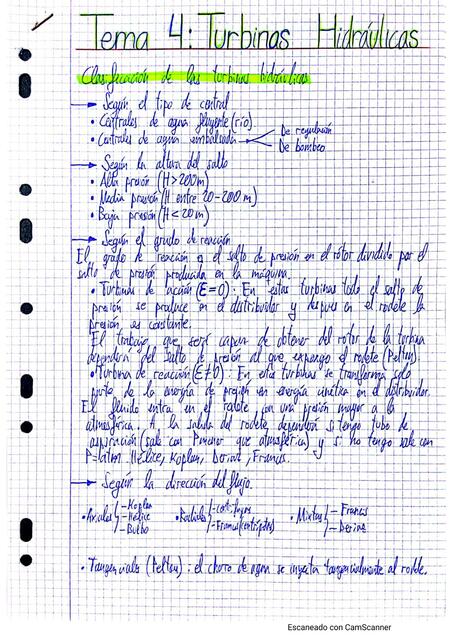 Tema 4: Turbinas Hidráulicas
Clasificación de las turbinas hidráulicas
→ Según el tipo de central
• Centrales de agua fluyente (río)
• Centrales de agua embalsada
De regulación
De bombeo
→ Según la altura del salto
• Alta presión (H>200m)
• Media presión (H entre 20-200m)
• Baja presión (H<20m)
→ Según el grado de reacción
El grado de reacción es el salto de presión en el rotor dividido por el
salto de presión producida en la máquina.
• Turbinas de acción (E=0): En estas turbinas todo el salto de
presión se produce en el distribuidor y después en el rodete la
presión es constante.
El trabajo que será capaz de obtener del rotor de la turbina
dependerá del salto de presión al que exponga el rodete (Pelton).
• Turbina de reacción (E≠0): En estas turbinas se transforma solo
parte de la energía de presión en energía cinética en el distribuidor.
El fluido entra en el rodete con una presión mayor a la
atmosférica. A la salida del rodete, dependerá si tengo tubo de
aspiración (sale con P menor que atmosférica) y si no tengo sale con
P=1atm. Hélice, Kaplan, Deriaz, Francis.
→ Según la dirección del flujo.
• Axiales
- Kaplan
- Hélice
- Bulbo
• Radiales
- Francis (centrípetas)
• Mixtas
- Francis
- Deriaz
• Tangenciales (Pelton): el chorro de agua se inyecta tangencialmente al rodete.
Escaneado con CamScanner